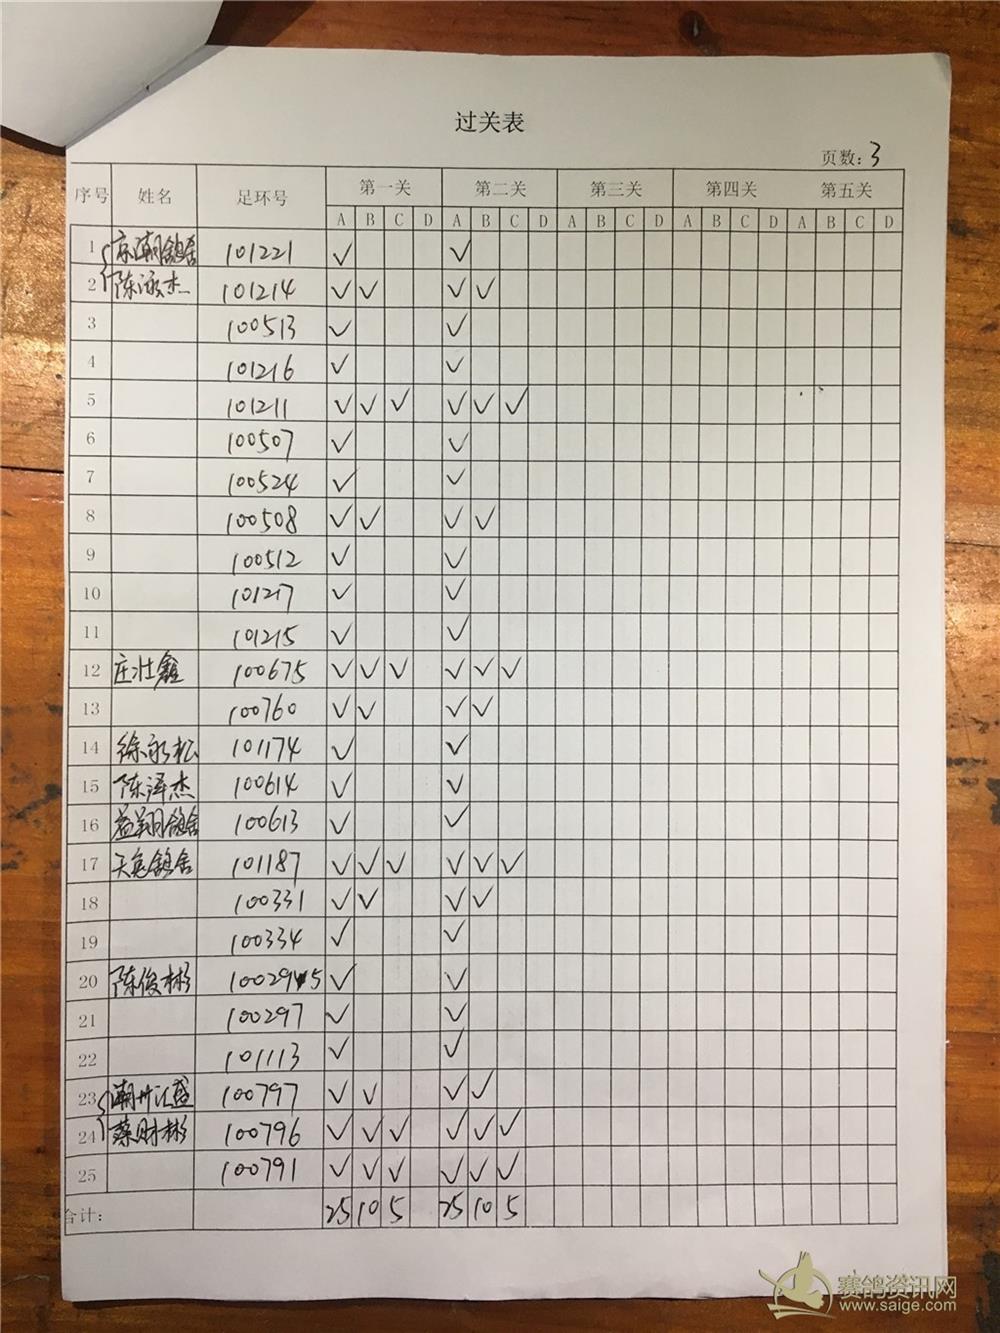 过关表
页数: 3
序号 姓名 足环号 第一关 第二关 第三关 第四关 第五关
A B C D A B C D A B C D A B C D A B C D
1 京潮鸽舍 101221 ✓ ✓
2 陈泳杰 101214 ✓ ✓ ✓ ✓
3 100513 ✓ ✓
4 101216 ✓ ✓
5 101211 ✓ ✓ ✓ ✓ ✓ ✓
6 100507 ✓ ✓
7 100524 ✓ ✓
8 100508 ✓ ✓ ✓ ✓
9 100512 ✓ ✓
10 101217 ✓ ✓
11 101215 ✓ ✓
12 庄壮鑫 100675 ✓ ✓ ✓ ✓ ✓ ✓
13 100760 ✓ ✓ ✓ ✓
14 徐永松 101174 ✓ ✓
15 陈泽杰 100614 ✓ ✓
16 益翔鸽舍 100613 ✓ ✓
17 鸽舍 101187 ✓ ✓ ✓ ✓ ✓ ✓
18 100331 ✓ ✓ ✓ ✓
19 100334 ✓ ✓
20 陈俊彬 100295 ✓ ✓
21 100297 ✓ ✓
22 101113 ✓ ✓
23 潮州汇盛 100797 ✓ ✓ ✓ ✓
24 蔡财彬 100796 ✓ ✓ ✓ ✓ ✓ ✓
25 100791 ✓ ✓ ✓ ✓ ✓ ✓
合计: 25 10 5 25 10 5
赛鸽资讯网
www.saige.com